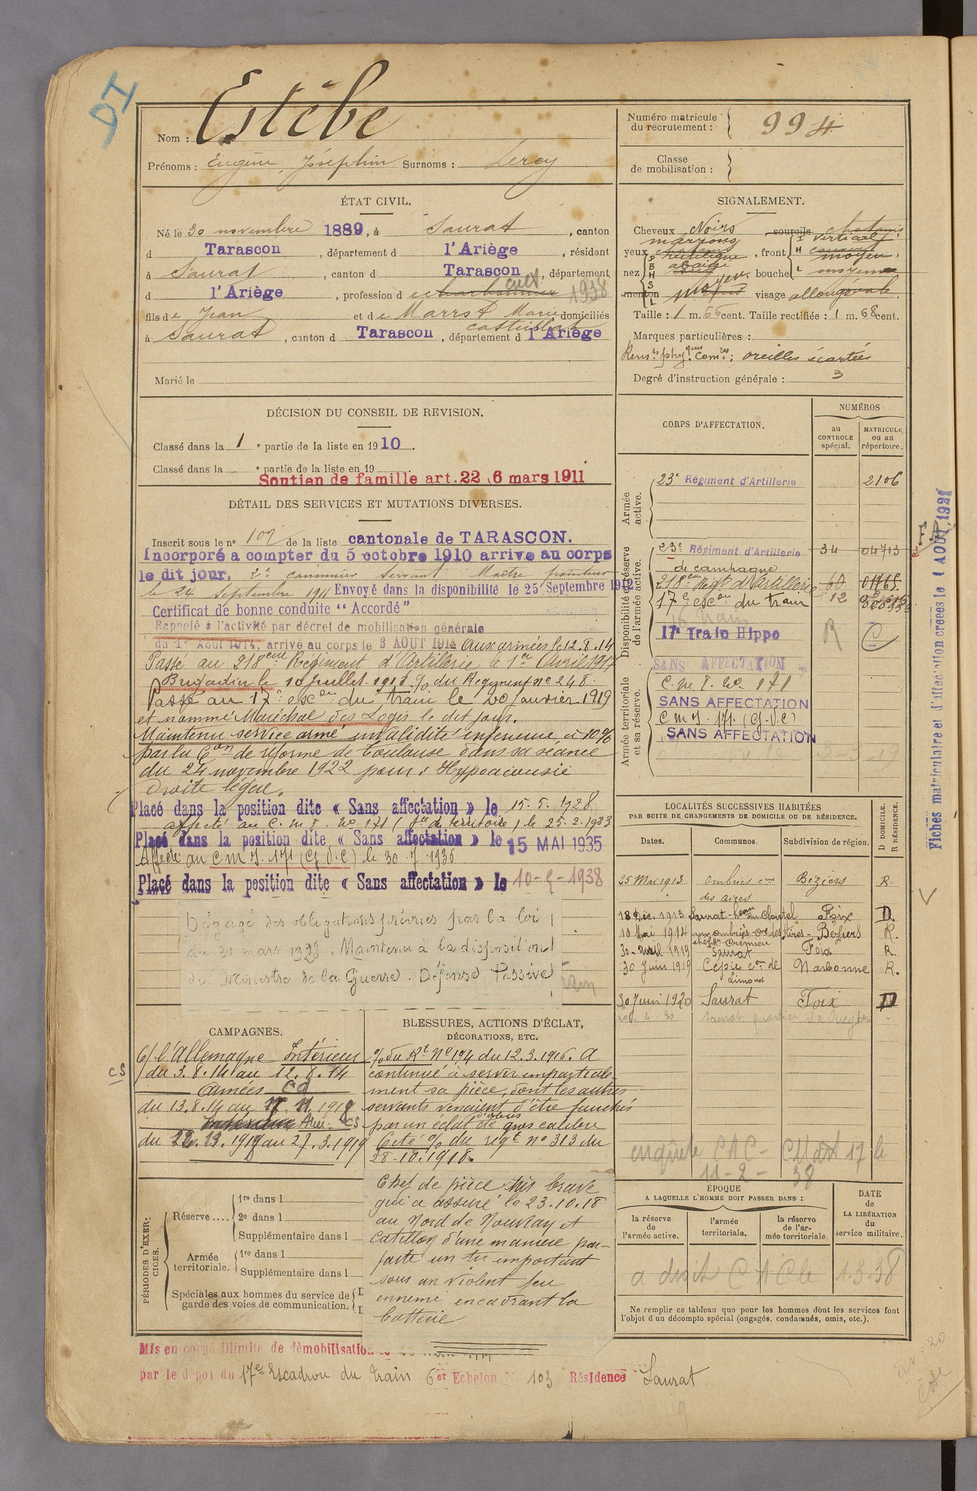 DI
Nom : Estèbe
Prénoms : Eugène, Joséphin Surnoms : Leroy
Numéro matricule du recrutement : 994
Classe de mobilisation :
ÉTAT CIVIL.
Né le 30 novembre 1889, à Saurat, canton
d Tarascon, département d l'Ariège, résidant
à Saurat, canton d Tarascon, département
d l'Ariège, profession d cult. 1938
fils de Jean et de Marrot Marie domiciliés
à Saurat, canton d Tarascon, département d l'Ariège
Marié le
SIGNALEMENT.
Cheveux Noirs sourcils chatains
yeux marrons, front vertical moyen,
nez, bouche moyenne
menton moyen visage allongé
Taille : 1 m. 66 cent. Taille rectifiée : 1 m. 68 cent.
Marques particulières :
Rens.ts phy.ques com.res : oreilles écartées
Degré d'instruction générale : 3
DÉCISION DU CONSEIL DE REVISION.
Classé dans la 1 e partie de la liste en 1910.
Classé dans la e partie de la liste en 19
Soutien de famille art. 22 6 mars 1911
DÉTAIL DES SERVICES ET MUTATIONS DIVERSES.
Inscrit sous le n° 102 de la liste cantonale de TARASCON.
Incorporé a compter du 5 octobre 1910 arrive au corps
le dit jour, 2e canonnier servant Maître pointeur
le 24 Septembre 1911 Envoyé dans la disponibilité le 25 Septembre 1912
Certificat de bonne conduite “ Accordé”
Rappelé à l'activité par décret de mobilisation générale
du 1er Aout 1914, arrivé au corps le 3 AOUT 1914 Aux armées le 12.8.14
Passé au 218eme Régiment d'Artillerie le 1er Avril 1917
Brigadier le 10 Juillet 1918 % du Régiment n° 248.
Passé au 17e esc.on du train le 20 Janvier 1919
et nommé Maréchal des Logis le dit jour.
Maintenu service armé invalidité inférieure à 10%
par la C.on de réforme de Toulouse dans sa séance
du 24 novembre 1922 pour : Hypoacousie
droite légère.
Placé dans la position dite « Sans affectation » le 15.5.1928
affecté au C.M.T. No 171 (Son de territoire) le 25.2.1933
Placé dans la position dite « Sans affectation » le 15 MAI 1935
Affecté au C M J. 171 (Cj. V.C) le 30.7.1936
Placé dans la position dite « Sans affectation » le 10-5-1938
Dégagé des obligations prévues par la loi
du 31 mars 1928. Maintenu à la disposition
du Ministre de la Guerre. Défense Passive
CORPS D'AFFECTATION.
NUMÉROS
au CONTROLE spécial.
MATRICULE ou au répertoire.
Armée active.
23e Régiment d'Artillerie 2106
Disponibilité et réserve de l'armée active.
23e Régiment d'Artillerie 34 04713
de campagne
218e Régt d'Artillerie
17e esc.on du train 12
17e Train Hippo R C
Armée territoriale et sa réserve.
SANS AFFECTATION
C.M.T. No 171
SANS AFFECTATION
C M J. 171. (Cj. V.C)
SANS AFFECTATION
Fiches matriculaire et d'affectation créées le 1 AOUT 1928
LOCALITÉS SUCCESSIVES HABITÉES
PAR SUITE DE CHANGEMENTS DE DOMICILE OU DE RÉSIDENCE.
Dates. Communes. Subdivision de région. D DOMICILE. R RÉSIDENCE.
25 Mai 1913 Béziers R.
18 Déc. 1913 Saurat Foix D.
10 Mai 1914 Béziers R.
1919 Saurat Foix R.
30 Juin 1919 Cépie con de Limoux Narbonne R.
30 Juin 1920 Saurat Foix D
enquête CAC -
11-2-38
CAMPAGNES.
C/ l'Allemagne Intérieur
CS du 3.8.14 au 12.8.14
Armées CD
du 13.8.14 au 11.1919
CS
du 1919 au 27.3.1919
BLESSURES, ACTIONS D'ÉCLAT, DÉCORATIONS, ETC.
% du Rt No 194 du 12.3.1916. A
continué à servir impartialement
sa pièce, dont les autres
servants venaient d'être fauchés
par un éclat d'obus de gros calibre
Cité % du régt no 313 du
28-10.1918.
Chef de pièce très brave
qui a assuré le 23.10.18
au Nord de Mouvray et
Catillon d'une manière parfaite
un tir important
sous un violent feu
ennemi encadrant la
batterie
PÉRIODES D'EXERCICES.
Réserve....
1re dans l
2e dans l
Supplémentaire dans l
Armée territoriale.
1re dans l
Supplémentaire dans l
Spéciales aux hommes du service de garde des voies de communication.
ÉPOQUE
A LAQUELLE L'HOMME DOIT PASSER DANS :
la réserve de l'armée active.
l'armée territoriale.
la réserve de l'armée territoriale
DATE de LA LIBÉRATION du service militaire.
a droit C A C le 1.3.38
Ne remplir ce tableau que pour les hommes dont les services font
l'objet d'un décompte spécial (engagés, condamnés, omis, etc.).
Mis en congé illimité de démobilisation
par le dépôt du 17e Escadron du train 6er Echelon No 103 Résidence Saurat